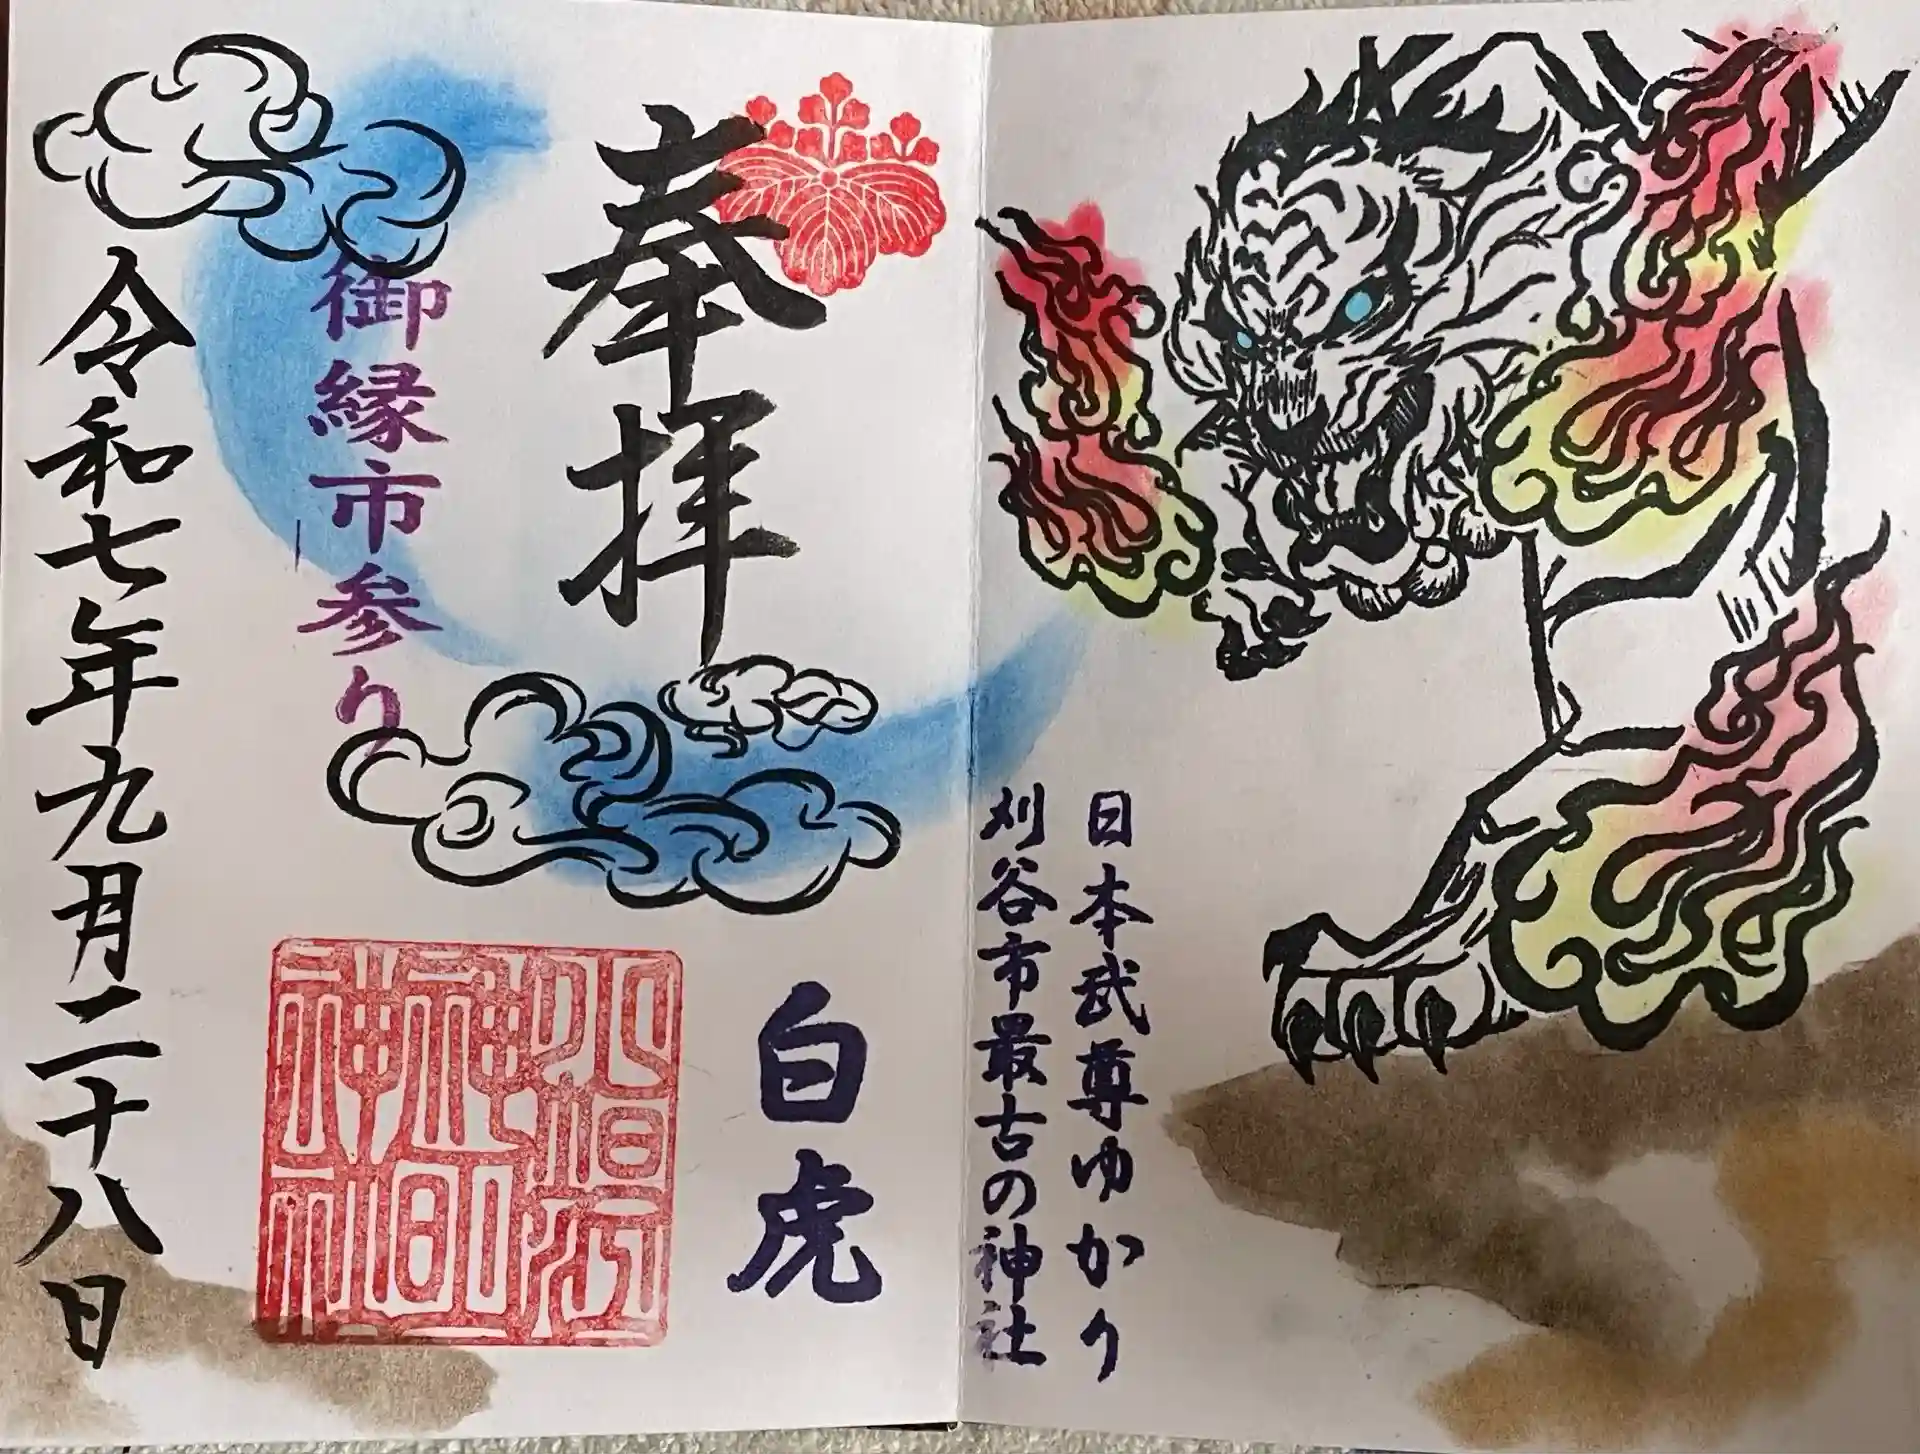 日本武尊ゆかり
刈谷市最古の神社
奉拝
白虎
御縁市参り
小垣江
神明
神社
令和七年九月二十八日